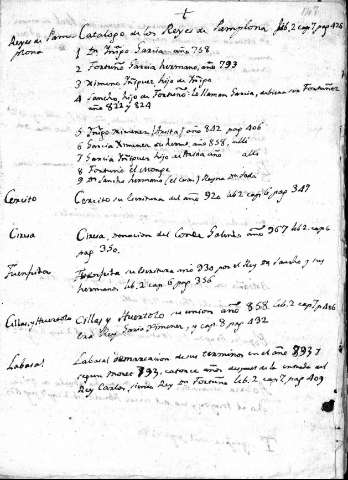 Reyes de Pam- Catalogo de los Reyes de Pamplona lib. 2 cap. 7, pag 426
plona
1 Dn Iñigo Garcia año 758
2 Fortuño Garcia hermano, año 793
3 Ximeno Iñiguez hijo de Iñigo
4 Sancho, hijo de Fortuño: le llaman Garcia,
año 822 y 824
5 Iñigo Ximenez (Arista) año 842 pag 406
6 Garcia Ximenez su herno, año 858, alli
7 Garcia Iñiguez hijo de Arista año alli
8 Fortuño el monge
9 Dn Sancho hermano
Cercito Cercito su Escritura del año 920 lib 2 cap 6, pag 347
Ciresa Ciresa, donacion del Conde Galindo año 967 lib 2 cap 6
pag 350.
Fuenfrida Fuenfrida su Escritura año 930 por el Rey Dn Sancho y sus
hermanos lib. 2 cap 6 pag 356
Cillas, y Huertolo Cillas y Huertolo su union año 858 lib. 2 cap 7, p 426
era Rey Garcia Ximenez, y cap. 8 pag 432
Labasal Labasal demarcacion de sus terminos en el año 893 y
segun Moret 793, catorce años despues de la entrada del
Rey Carlos, siendo Rey Dn Fortuño lib. 2 cap 7, pag 409